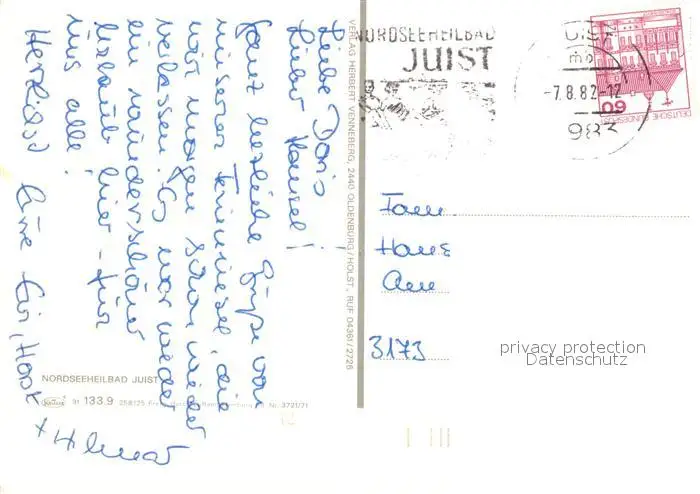 Liebe Doris
Lieber Hansel!
Ganz herzliche Grüße von
unserer Ferieninsel, die
wir morgen schon wieder
verlassen. Es war wieder
ein wunderschöner
Urlaub hier - für
uns alle!
Herzlichst Eure
+ Helmut
VERLAG HERBERT VENNEBERG, 2440 OLDENBURG/HOLST., RUF 04361/2726
NORDSEEHEILBAD JUIST
91 133.9 258125 Nr. 3721/71
NORDSEEHEILBAD
JUIST
JUIST
-7.8.82-12
983
60
DEUTSCHE BUNDESPOST
Fam.
Hans
Am
3173
privacy protection
Datenschutz